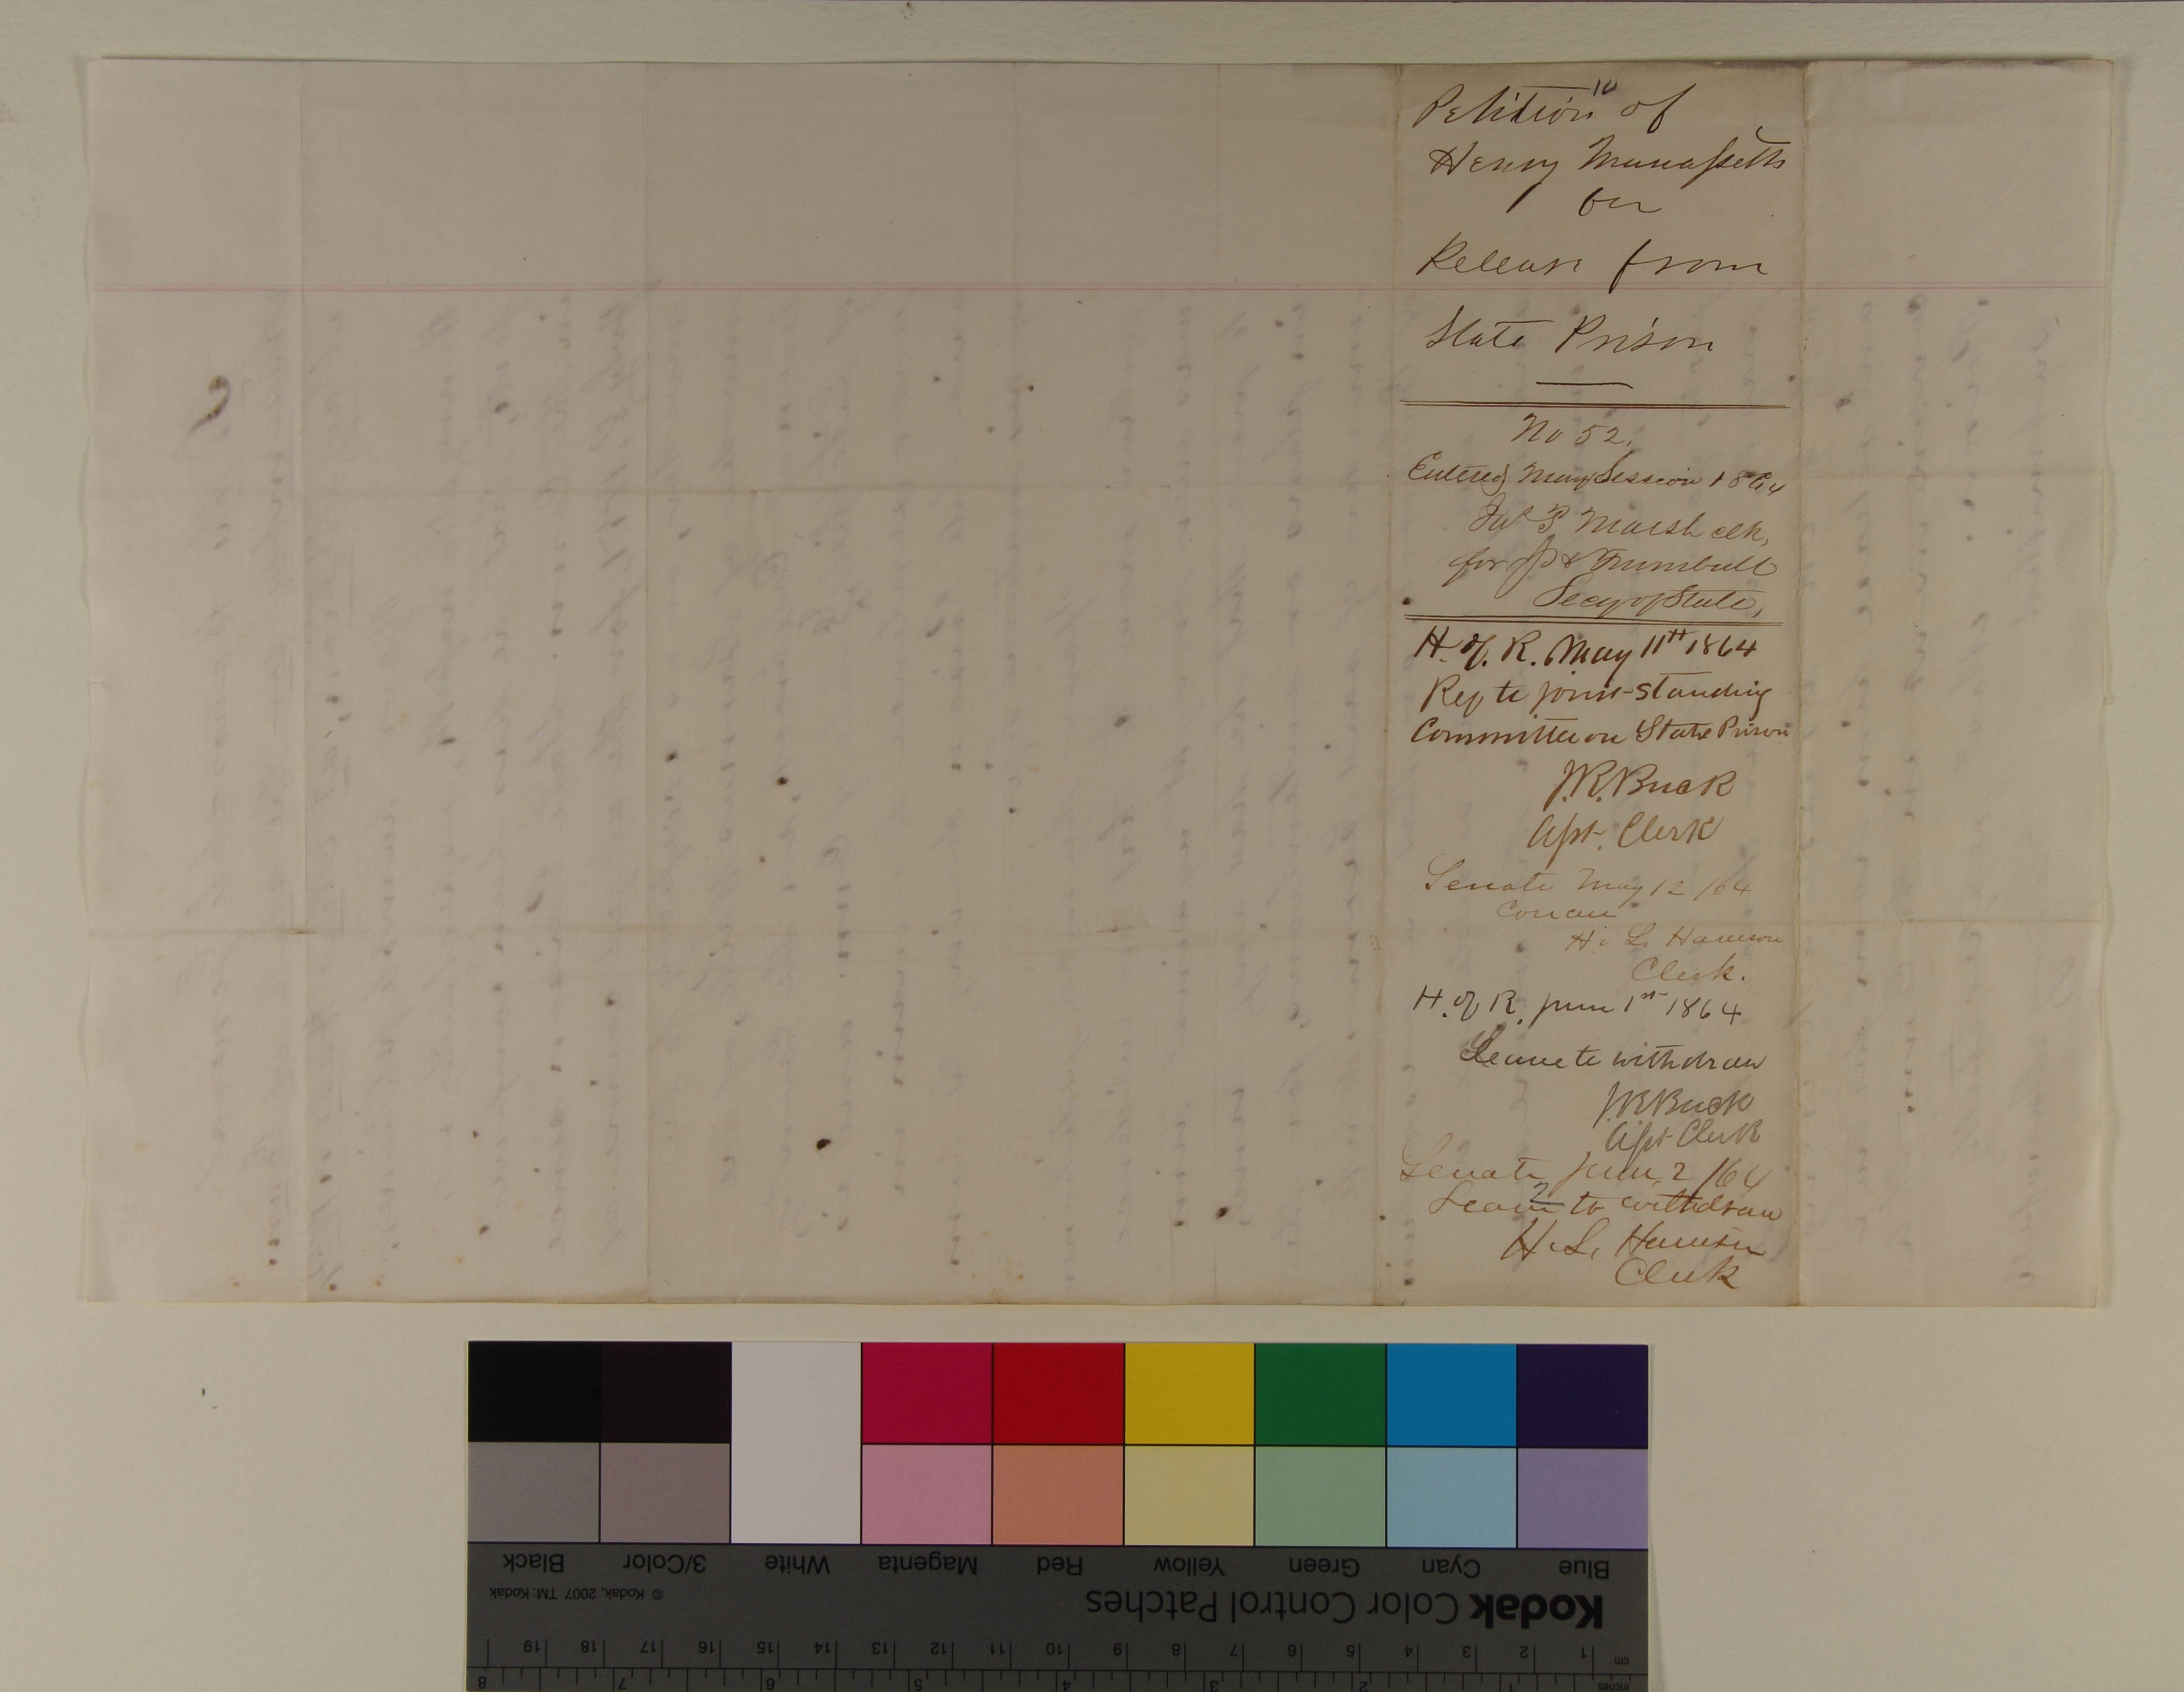 10
Petition of
Henry Manassetts
for
Release from
State Prison
No 52.
Entered May Session 1864
Jno P Marsh clk,
for Trumbull
Secy of State,
H. of. R. May 11th 1864
Ref to joint-standing
Committee on State Prison
J.R. Buck
Asst. Clerk
Senate May 12 /64
Concur
H. L. Harrison
Clerk.
H. of R. June 1st 1864
Leave to withdraw
J.R. Buck
Asst Clerk
Senate June 2 /64
Leave to withdraw
H. L. Harrison
Clerk
Blue Cyan Green Yellow Red Magenta White 3/Color Black
Kodak Color Control Patches
© Kodak, 2007 TM: Kodak
cm 1 2 3 4 5 6 7 8 9 10 11 12 13 14 15 16 17 18 19
inches 1 2 3 4 5 6 7 8